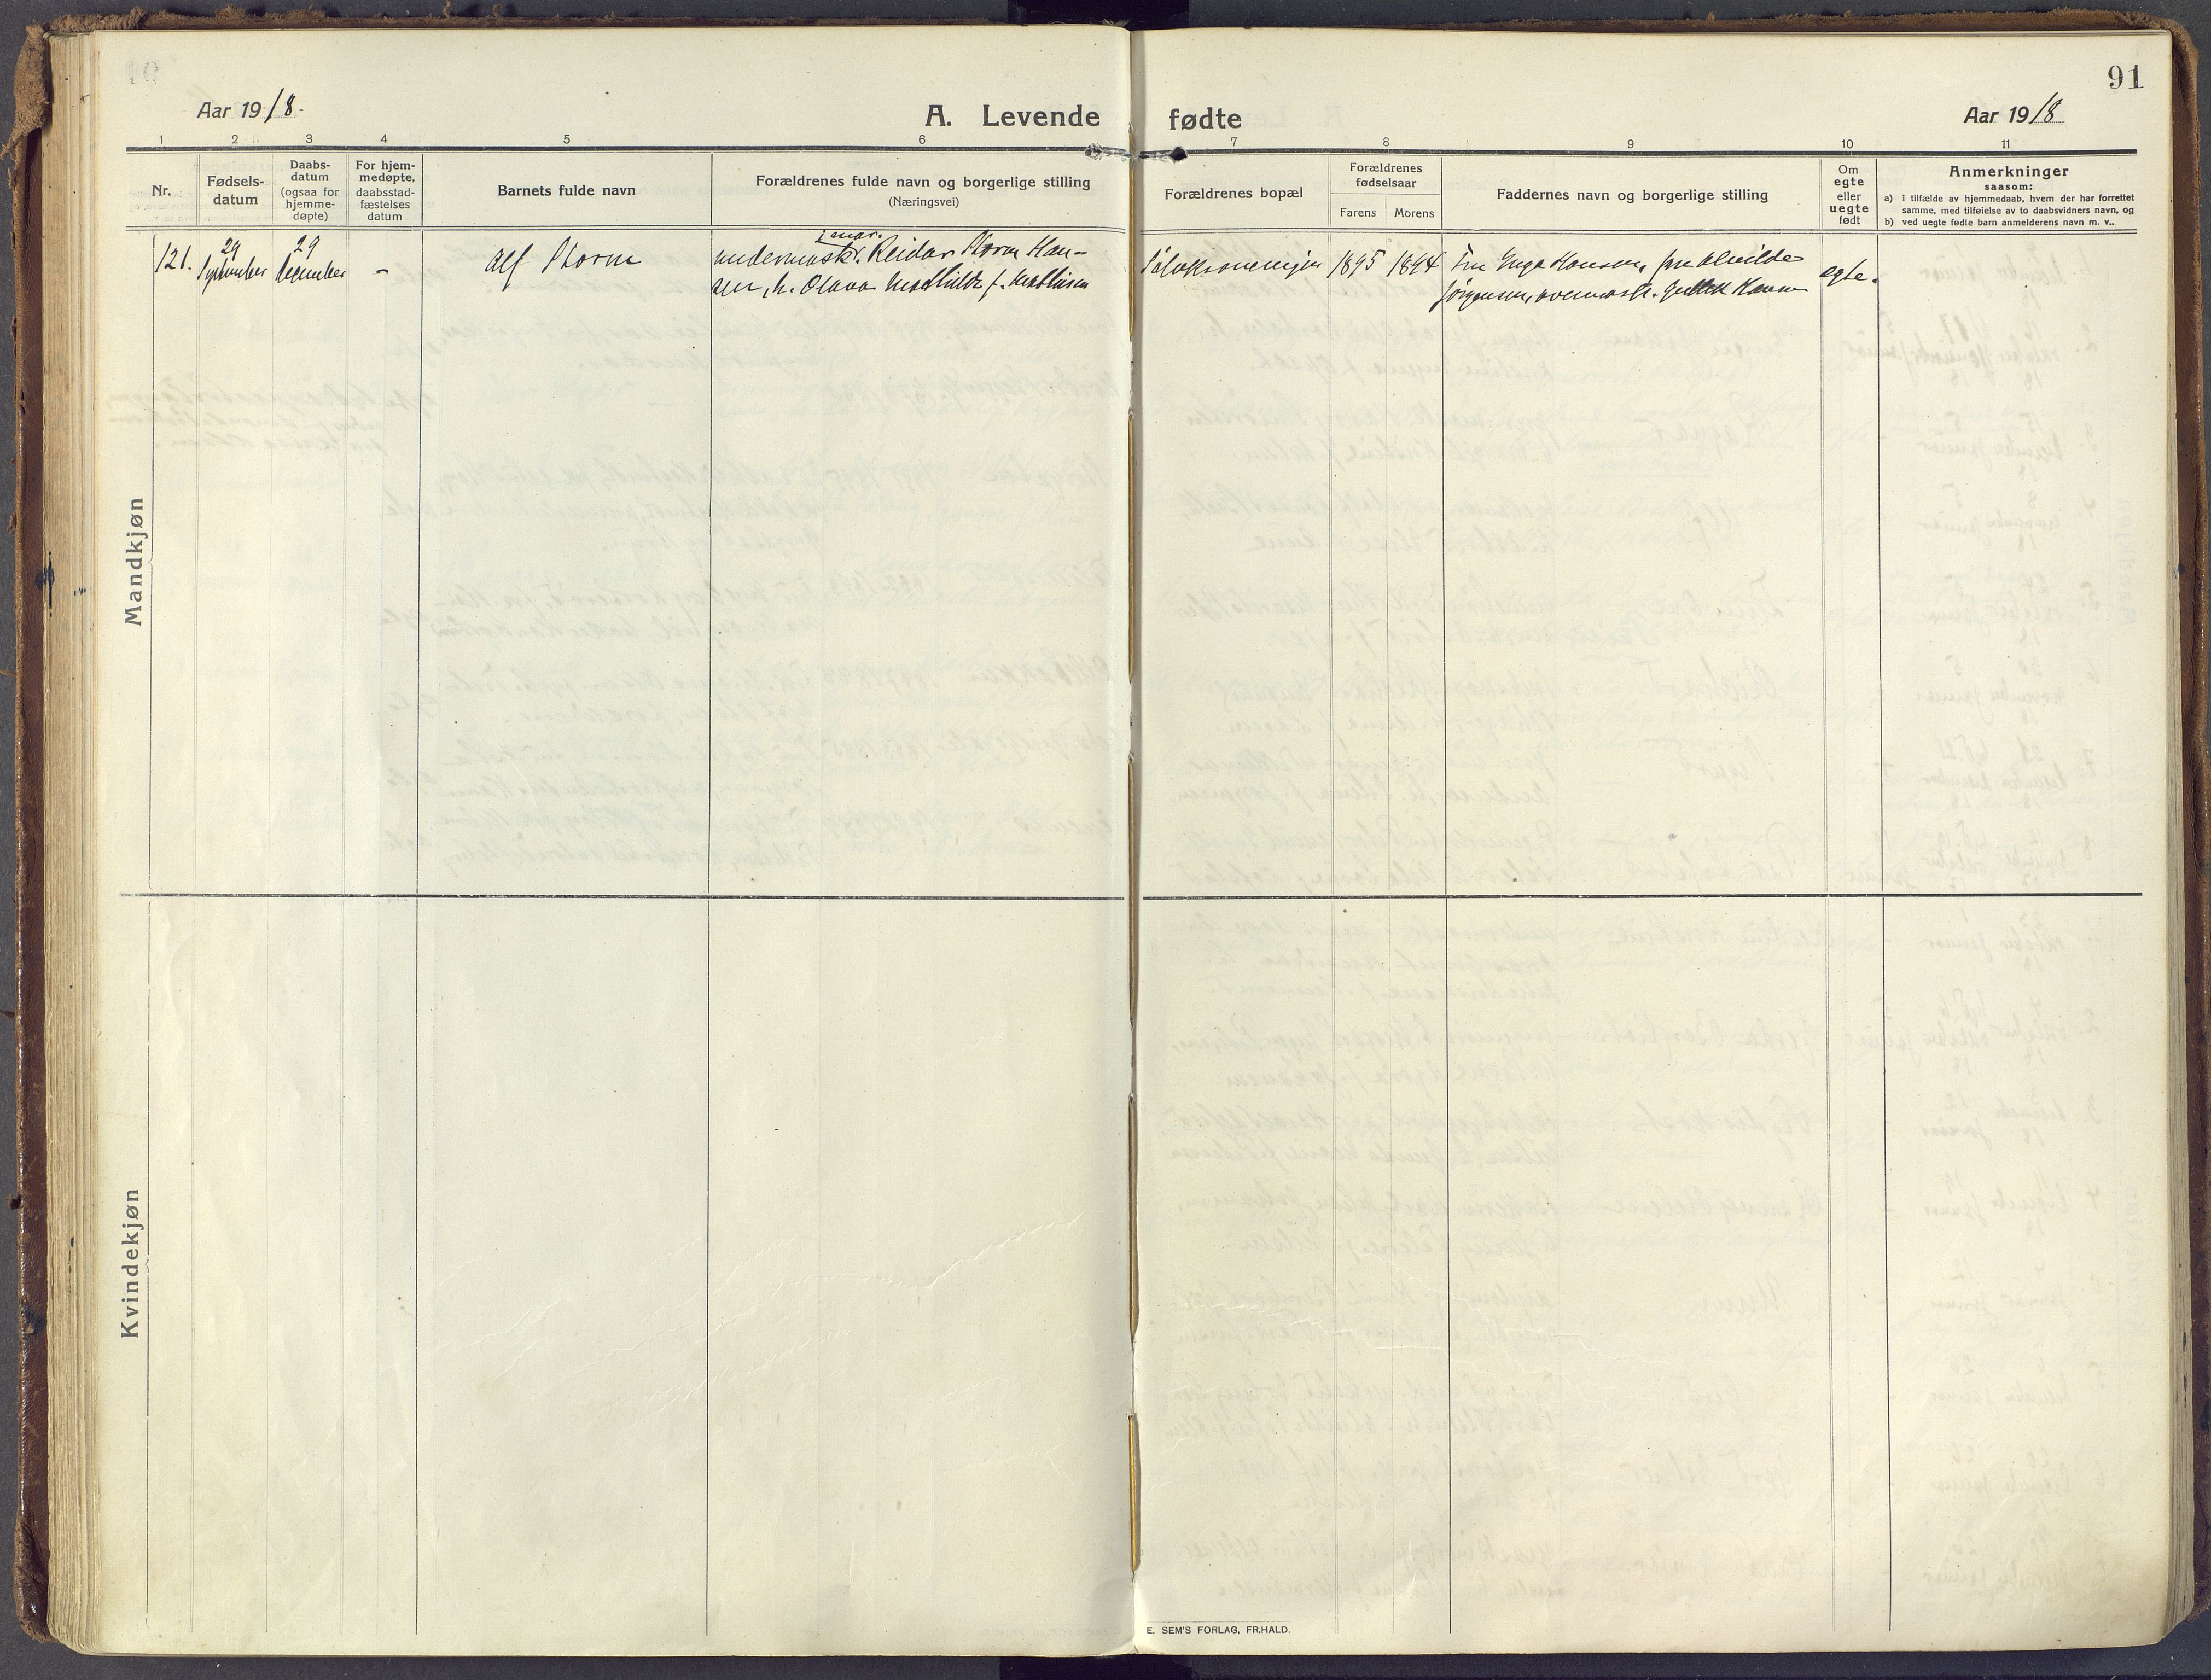 91
Aar 1918.
A. Levende fødte
Aar 1918
1 2 3 4 5 6 7 8 9 10 11
Nr.
Fødsels-
datum
Daabs-
datum
(ogsaa for
hjemme-
døpte)
For hjem-
medøpte,
daabsstad-
fæstelses
datum
Barnets fulde navn
Forældrenes fulde navn og borgerlige stilling
(Næringsvei)
Forældrenes bopæl
Forældrenes
fødselsaar
Farens Morens
Faddernes navn og borgerlige stilling
Om
egte
eller
uegte
født
Anmerkninger
saasom:
a) i tilfælde av hjemmedaab, hvem der har forrettet
samme, med tilføielse av to daabsvidners navn, og
b) ved uegte fødte barn anmelderens navn m. v..
Mandkjøn
121.
29
September
29
December
-
Alf Storm
undermaskr. Reidar Storm Han-
sen, h. Olava Mathilde f. Mathisen
1895 1894
Fru Inga Hansen, fru Alvilde
Jørgensen, overmask. Hansen
egte.
Kvindekjøn
E. SEM'S FORLAG, FR.HALD.